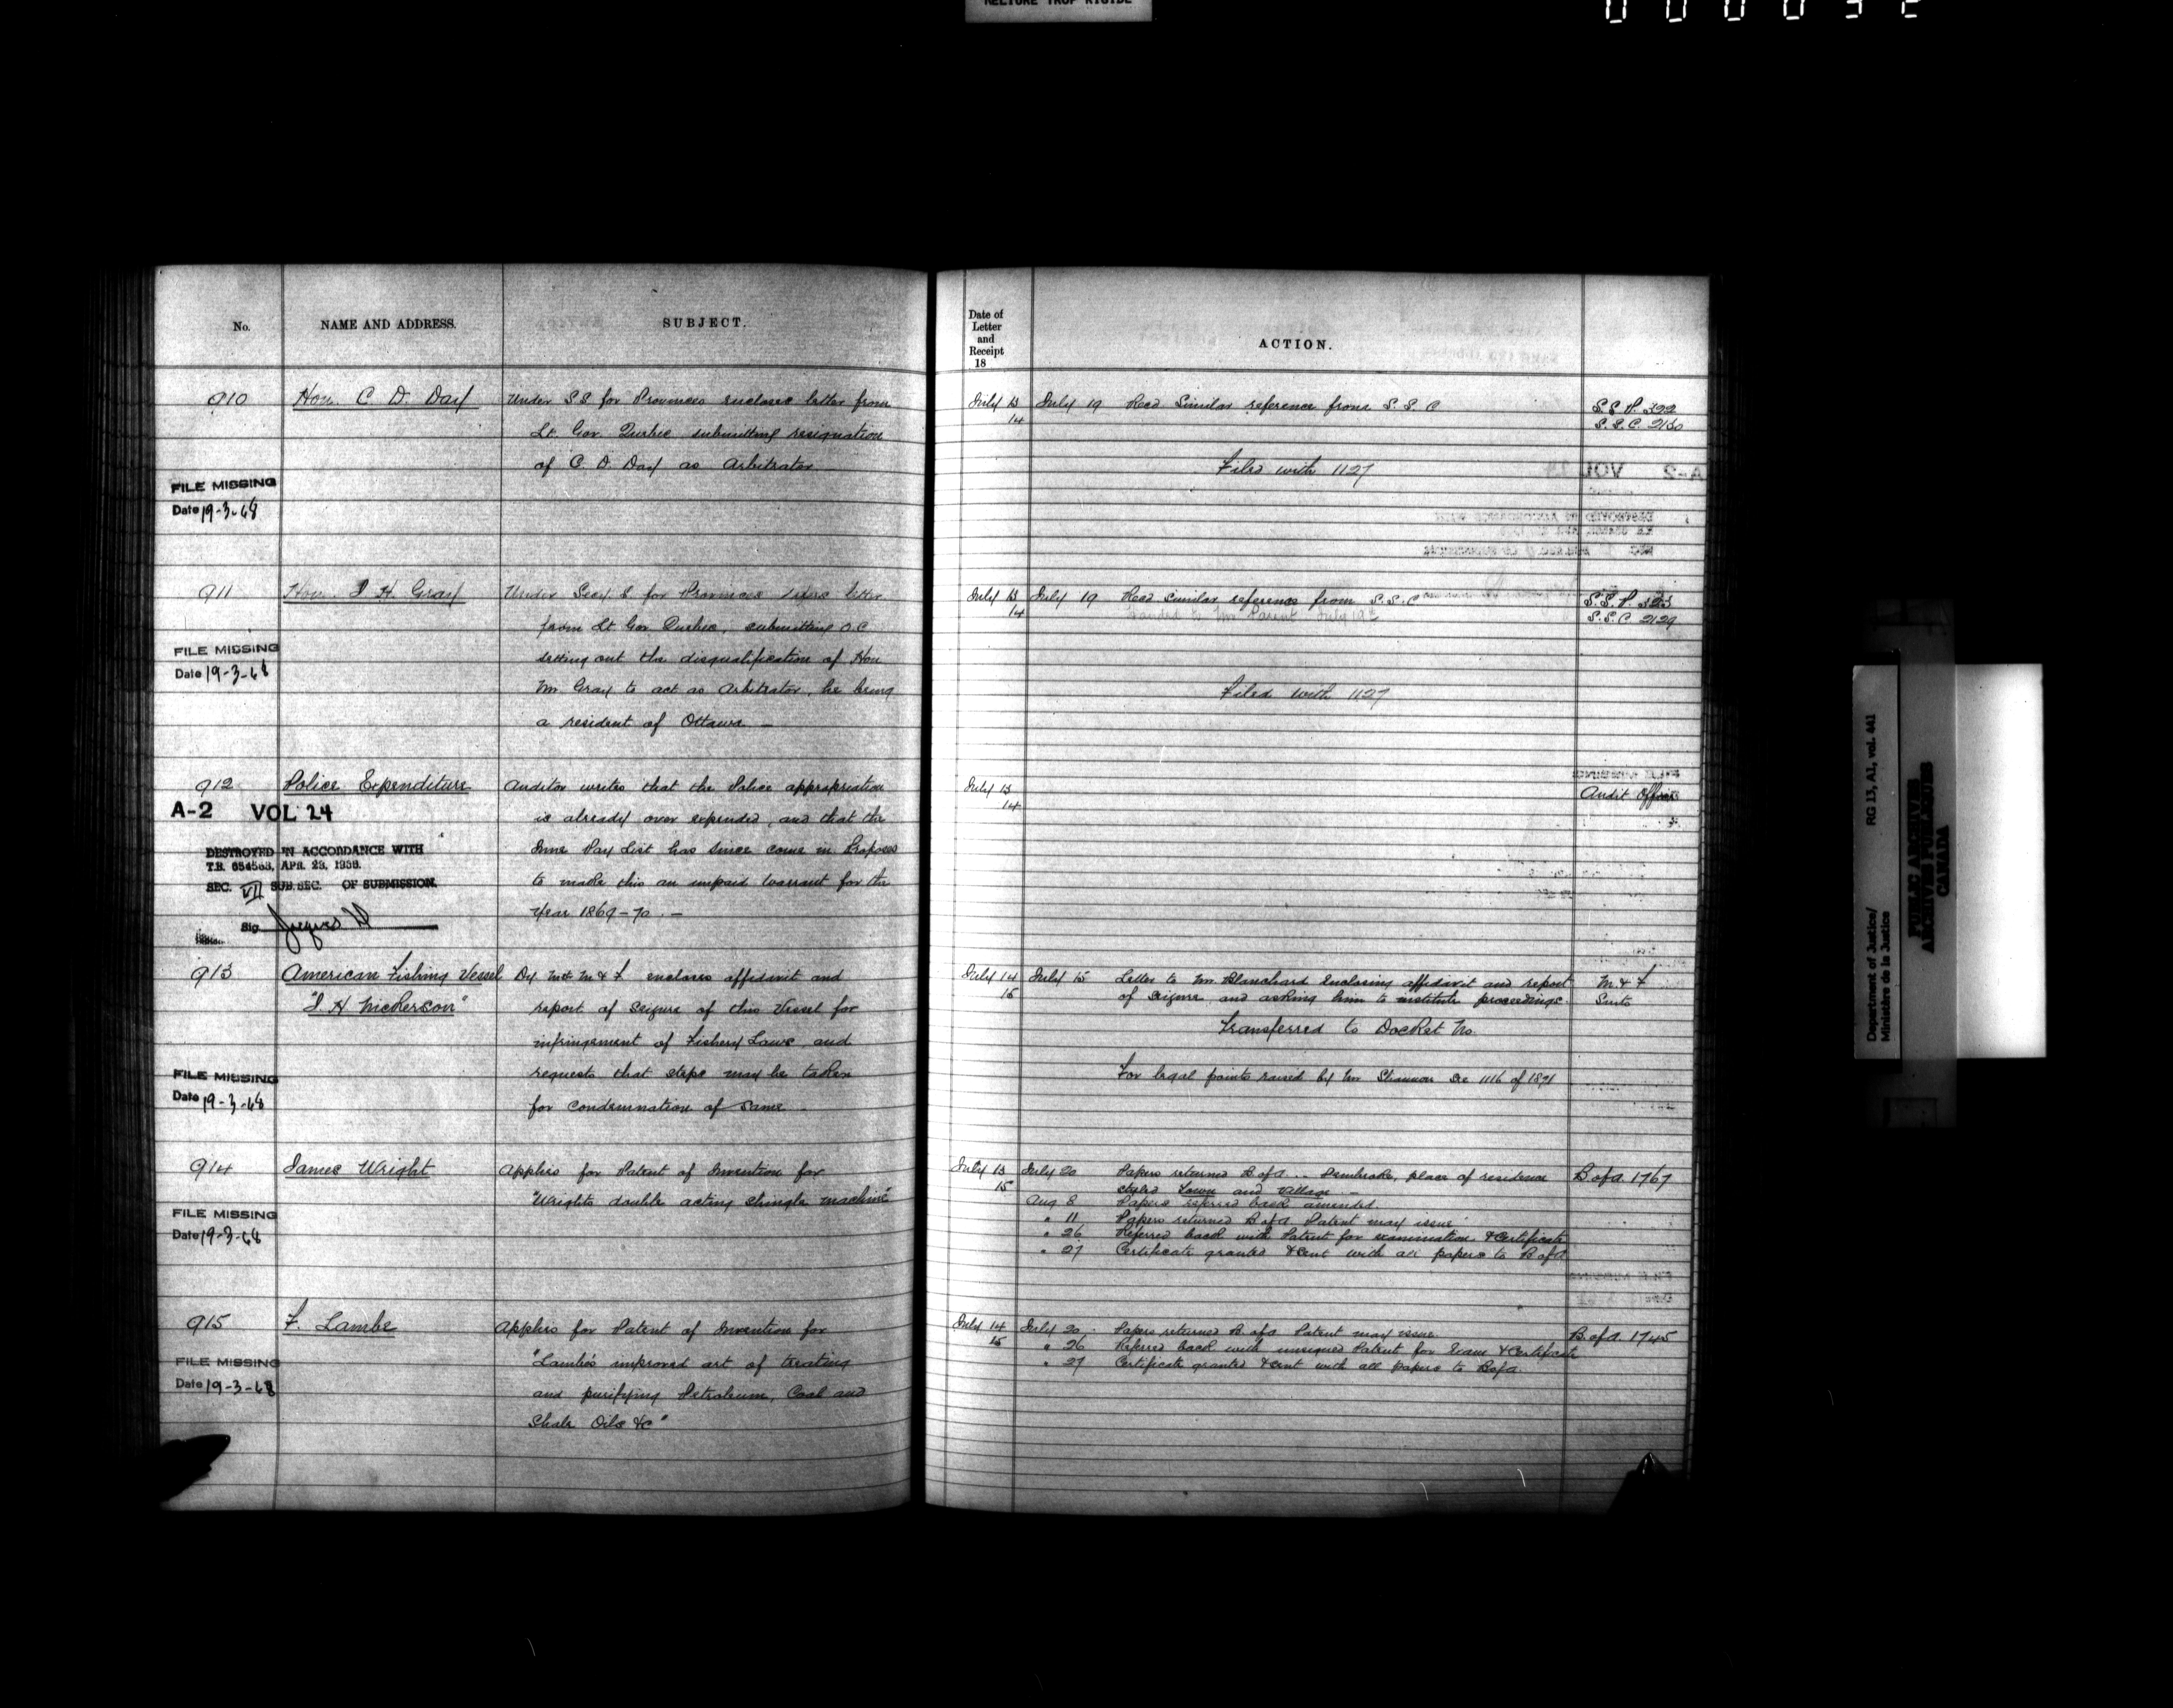 No. NAME AND ADDRESS. SUBJECT.
910 Hon. C. D. Day Under SS for Provinces enclose letter from
Lt. Gov. Quebec submitting resignation
of C. D. Day as Arbitrator
FILE MISSING
Date 19-3-68
911 Hon. J. H. Gray Under Secy. S for Provinces refers letter
from Lt Gov Quebec, submitting O.C
setting out the disqualification of Hon
Mr Gray to act as Arbitrator, he being
a resident of Ottawa —
FILE MISSING
Date 19-3-68
912 Police Expenditure Auditor writes that the Police appropriation
is already over expended, and that the
June Pay List has since come in. Proposes
to make this an unpaid warrant for the
Year 1869-70. —
A-2 VOL 24
DESTROYED IN ACCORDANCE WITH
T.B. 654563, APR. 23, 1958.
SEC. VII SUB. SEC. OF SUBMISSION.
Sig.
913 American Fishing Vessel Dy Mtr M & F encloses affidavit and
"J H Nickerson" report of Seizure of this Vessel for
infringement of Fishery Laws, and
requests that steps may be taken
for condemnation of same
FILE MISSING
Date 19-3-68
914 James Wright Applies for Patent of Invention for
"Wrights double acting shingle machine"
FILE MISSING
Date 19-3-68
915 F. Lambe Applies for Patent of Invention for
"Lambe's improved art of treating
and purifying Petroleum, Coal and
Shale Oils &c"
FILE MISSING
Date 19-3-68
Date of
Letter
and
Receipt
18
ACTION.
July 13 July 19 Recd Similar reference from S. S. C S.S.P. 322
14 S.S.C. 2130
Filed with 1127
July 13 July 19 Recd similar reference from S.S.C S.S.P. 323
14 Handed to Mr Parent July 19th S.S.C. 2129
Filed with 1127
July 13 Audit Office
14
July 14 July 15 Letter to Mr Blanchard Enclosing affidavit and report M. & F
15 of Seizure, and asking him to institute proceedings.
Transferred to Docket No
For legal points raised by Mr Shannon See 1116 of 1871
July 13 July 20 Papers returned B of A .. Pembroke, place of residence B of A 1767
15 styled Town and Village —
Aug 8 Papers referred back amended.
" 11 Papers returned B of A Patent may issue
" 26 Referred back with Patent for examination & Certificate
" 27 Certificate granted & sent with all papers to B of A
July 14 July 20 Papers returned B. of A Patent may issue. B. of A. 1745
15 " 26 Referred back with unsigned Patent for Exam & Certificate
" 27 Certificate granted & sent with all papers to B of A.
Department of Justice/ RG 13, A1, vol. 441
Ministère de la Justice
PUBLIC ARCHIVES
ARCHIVES PUBLIQUES
CANADA